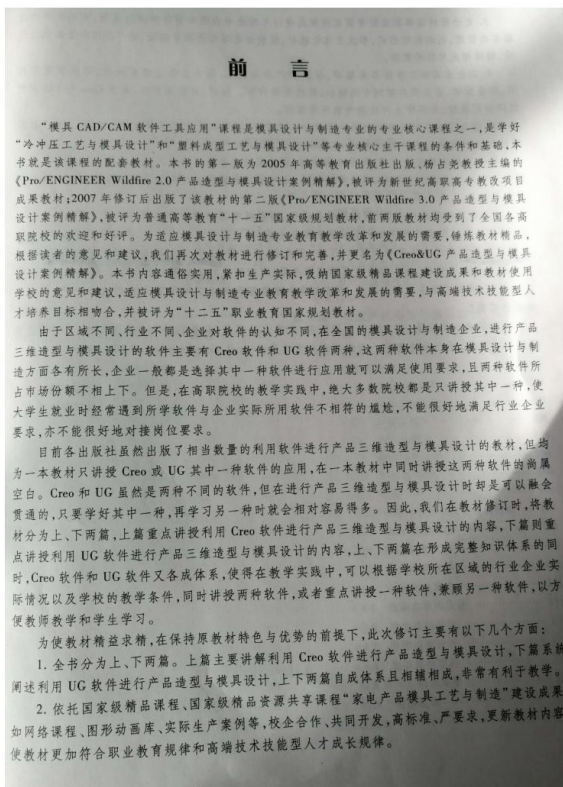 前 言
“模具 CAD/CAM 软件工具应用”课程是模具设计与制造专业的专业核心课程之一,是学好
“冷冲压工艺与模具设计”和“塑料成型工艺与模具设计”等专业核心主干课程的条件和基础,本
书就是该课程的配套教材。本书的第一版为 2005 年高等教育出版社出版、杨占尧教授主编的
《Pro/ENGINEER Wildfire 2.0 产品造型与模具设计案例精解》,被评为新世纪高职高专教改项目
成果教材;2007 年修订后出版了该教材的第二版《Pro/ENGINEER Wildfire 3.0 产品造型与模具
设计案例精解》,被评为普通高等教育“十一五”国家级规划教材,前两版教材均受到了全国各高
职院校的欢迎和好评。为适应模具设计与制造专业教育教学改革和发展的需要,锤炼教材精品,
根据读者的意见和建议,我们再次对教材进行修订和完善,并更名为《Creo&UG 产品造型与模具
设计案例精解》。本书内容通俗实用,紧扣生产实际,吸纳国家级精品课程建设成果和教材使用
学校的意见和建议,适应模具设计与制造专业教育教学改革和发展的需要,与高端技术技能型人
才培养目标相吻合,并被评为“十二五”职业教育国家规划教材。
由于区域不同、行业不同、企业对软件的认知不同,在全国的模具设计与制造企业,进行产品
三维造型与模具设计的软件主要有 Creo 软件和 UG 软件两种,这两种软件本身在模具设计与制
造方面各有所长,企业一般都是选择其中一种软件进行应用就可以满足使用要求,且两种软件所
占市场份额不相上下。但是,在高职院校的教学实践中,绝大多数院校都是只讲授其中一种,使
大学生就业时经常遇到所学软件与企业实际所用软件不相符的尴尬,不能很好地满足行业企业
要求,亦不能很好地对接岗位要求。
目前各出版社虽然出版了相当数量的利用软件进行产品三维造型与模具设计的教材,但均
为一本教材只讲授 Creo 或 UG 其中一种软件的应用,在一本教材中同时讲授这两种软件的尚属
空白。Creo 和 UG 虽然是两种不同的软件,但在进行产品三维造型与模具设计时却是可以融会
贯通的,只要学好其中一种,再学习另一种时就会相对容易得多。因此,我们在教材修订时,将教
材分为上、下两篇,上篇重点讲授利用 Creo 软件进行产品三维造型与模具设计的内容,下篇则重
点讲授利用 UG 软件进行产品三维造型与模具设计的内容,上、下两篇在形成完整知识体系的同
时,Creo 软件和 UG 软件又各成体系,使得在教学实践中,可以根据学校所在区域的行业企业实
际情况以及学校的教学条件,同时讲授两种软件,或者重点讲授一种软件,兼顾另一种软件,以方
便教师教学和学生学习。
为使教材精益求精,在保持原教材特色与优势的前提下,此次修订主要有以下几个方面:
1. 全书分为上、下两篇。上篇主要讲解利用 Creo 软件进行产品造型与模具设计,下篇系统
阐述利用 UG 软件进行产品造型与模具设计,上下两篇自成体系且相辅相成,非常有利于教学。
2. 依托国家级精品课程、国家级精品资源共享课程“家电产品模具工艺与制造”建设成果
如网络课程、图形动画库、实际生产案例等,校企合作、共同开发,高标准、严要求,更新教材内容
使教材更加符合职业教育规律和高端技术技能型人才成长规律。